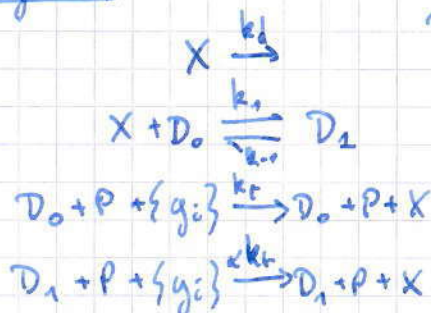 X \xrightarrow{k_d}
X + D₀ \xrightleftharpoons[k_{-1}]{k_1} D₁
D₀ + P + {gᵢ} \xrightarrow{k_t} D₀ + P + X
D₁ + P + {gᵢ} \xrightarrow{αk_t} D₁ + P + X